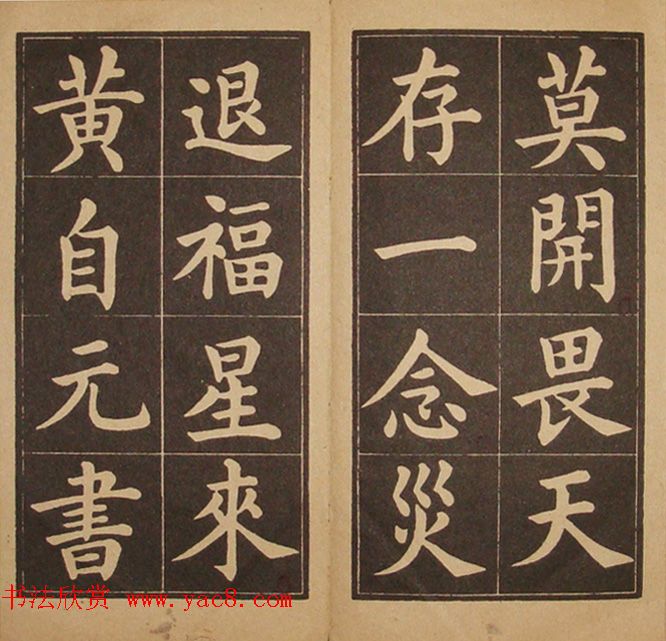 莫開畏天
存一念災
退福星來
黃自元書
书法欣赏 www.yac8.com